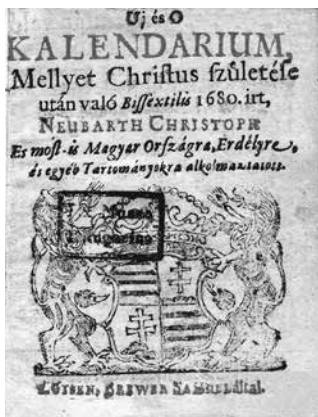 Uj és O
KALENDARIUM,
Mellyet Chriſtus ſzületéſe
után való Biſſextilis 1680. irt,
NEUBARTH CHRISTOPH
Es moſt-is Magyar Orſzágra, Erdélyre,
és egyéb Tartományokra alkolmaztatott.
LŐTSEN, BREWER SAMUEL által.